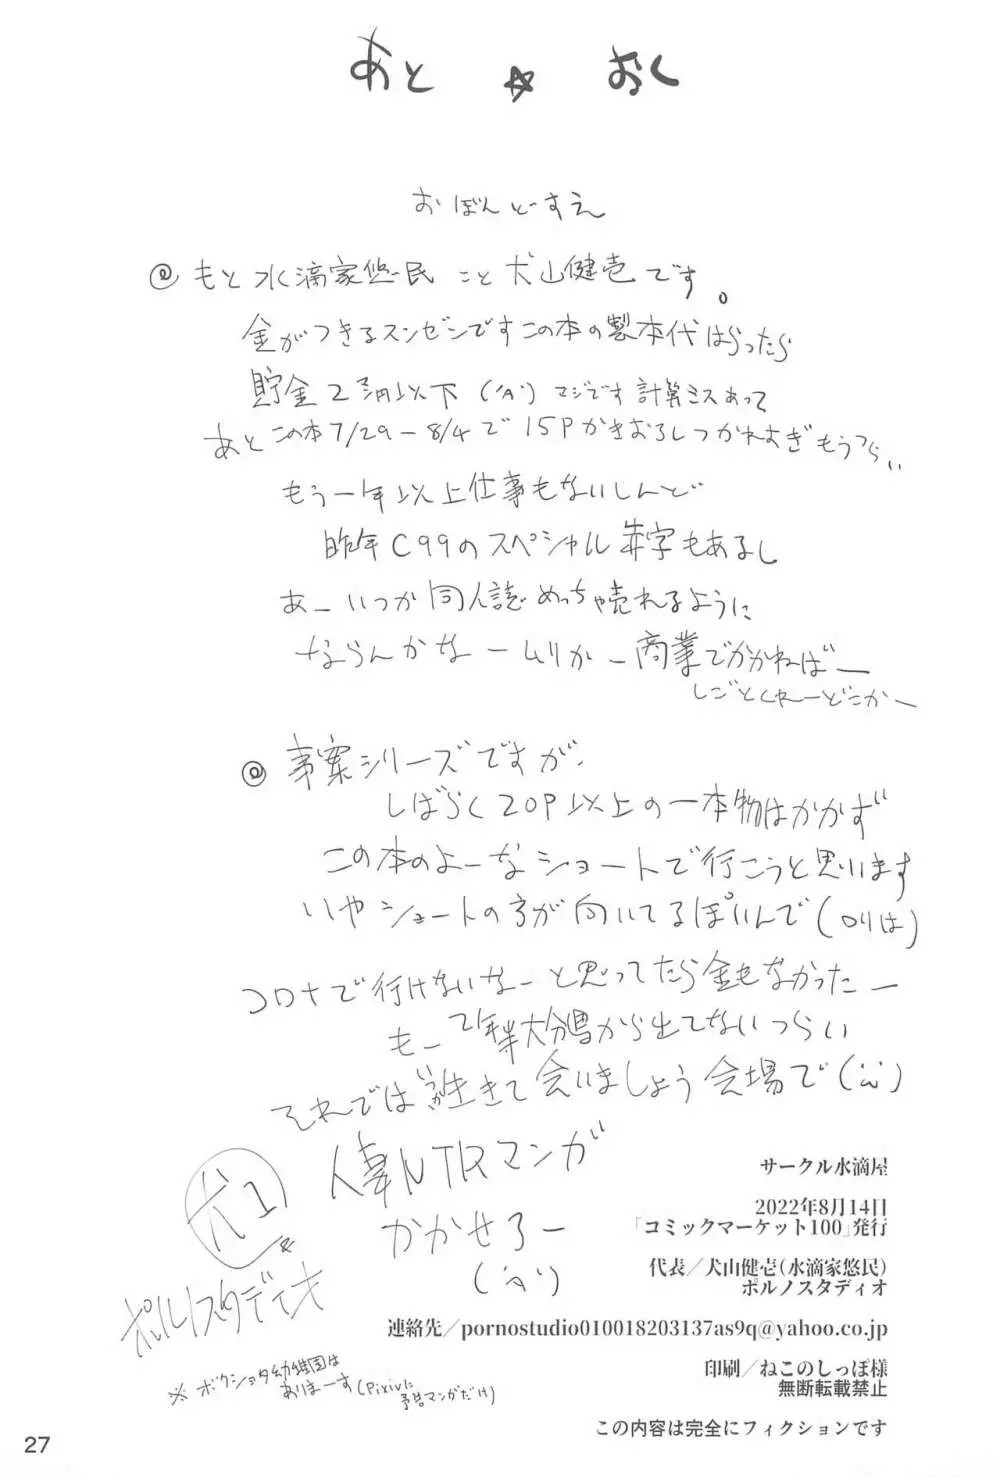 あと☆おく
おぼんどーすえ
@ もと水滴家悠民こと犬山健壱です。
金がつきるスンゼンですこの本の製本代はらったら
貯金2万円以下 マジです計算ミスあって
あとこの本7/29-8/4で15Pかきおろしつかれすぎもうつらい
もう一年以上仕事もないしんど
昨年C99のスペシャル赤字もあるし
あーいつか同人誌めっちゃ売れるように
ならんかなームリかー商業でかかねばー
しごとくれーどこかー
@ 事案シリーズですが、
しばらく20P以上の一本物はかかず
この本のよーなショートで行こうと思います
いやショートの方が向いてるぽいんで
コロナで行けないなーと思ってたら金もなかったー
もー2年半大分県から出てないつらい
それでは 生きて会いましょう会場で
人妻NTRマンガ
かかせろー
犬1
ポルノスタディオ
※ボクショタ幼稚園は
ありまーす(Pixivに
予告マンガだけ)
サークル水滴屋
2022年8月14日
「コミックマーケット100」発行
代表／犬山健壱(水滴家悠民)
ポルノスタディオ
連絡先／pornostudio010018203137as9q@yahoo.co.jp
印刷／ねこのしっぽ様
無断転載禁止
この内容は完全にフィクションです
27